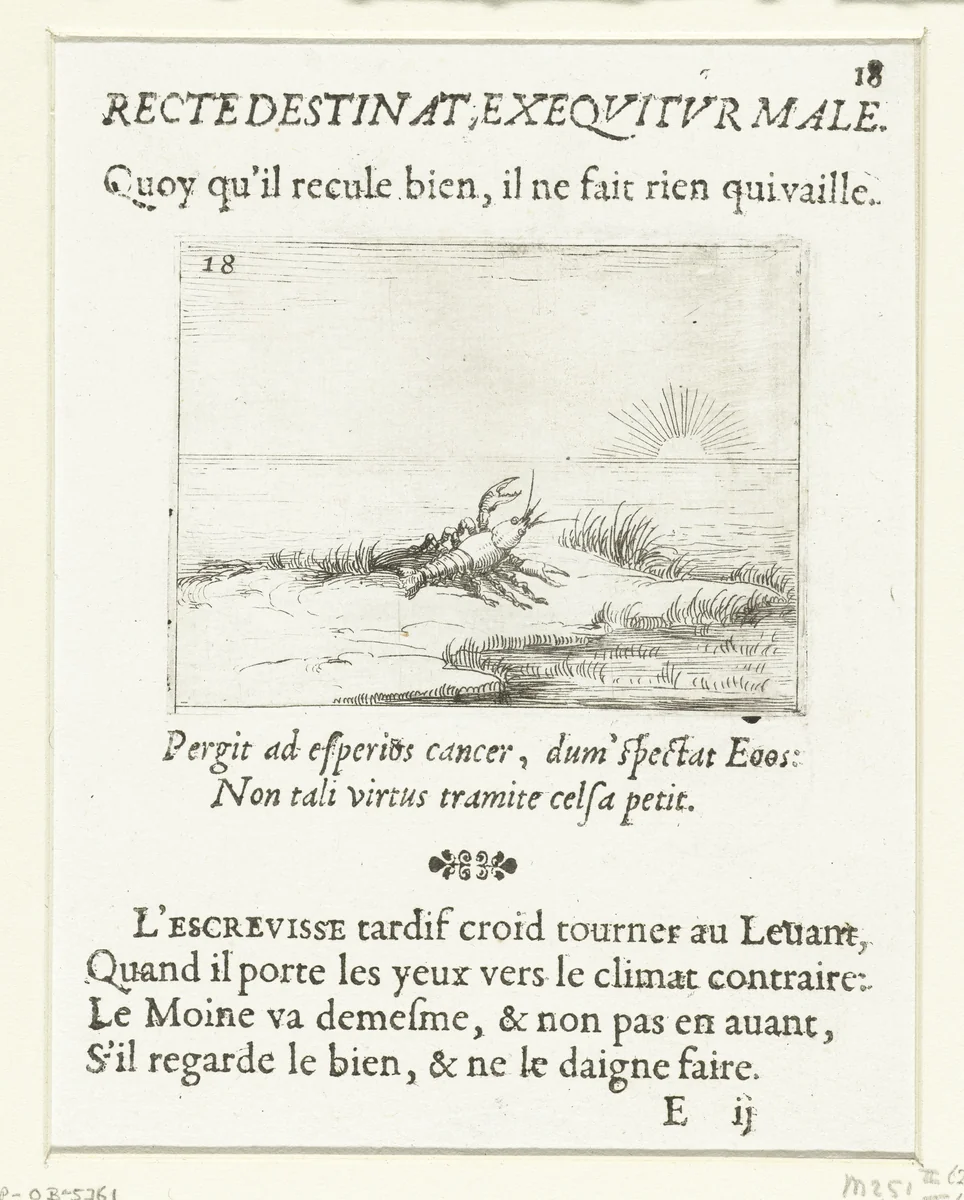 18
RECTE DESTINAT, EXEQVITVR MALE.
Quoy qu'il recule bien, il ne fait rien qui vaille.
18
Pergit ad eſperios cancer, dum ſpectat Eoos:
Non tali virtus tramite celſa petit.
L'ESCREVISSE tardif croid tourner au Leuant,
Quand il porte les yeux vers le climat contraire:
Le Moine va demeſme, & non pas en auant,
S'il regarde le bien, & ne le daigne faire.
E ij
P-OB-5761
M251 II 62